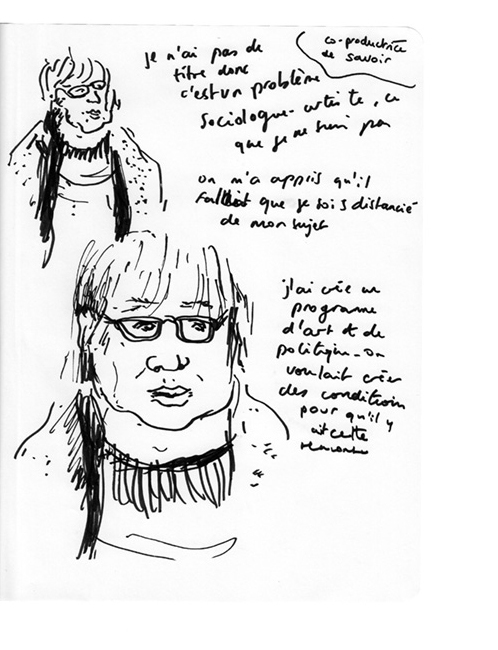 co-productrice
de savoir
je n'ai pas de
titre donc
c'est un problème
Sociologue-artiste, ce
que je ne suis pas
on m'a appris qu'il
fallait que je sois distancié
de mon sujet
j'ai crée un
programme
d'art et de
politique - on
voulait créer
des conditions
pour qu'il y
ait cette
rencontre